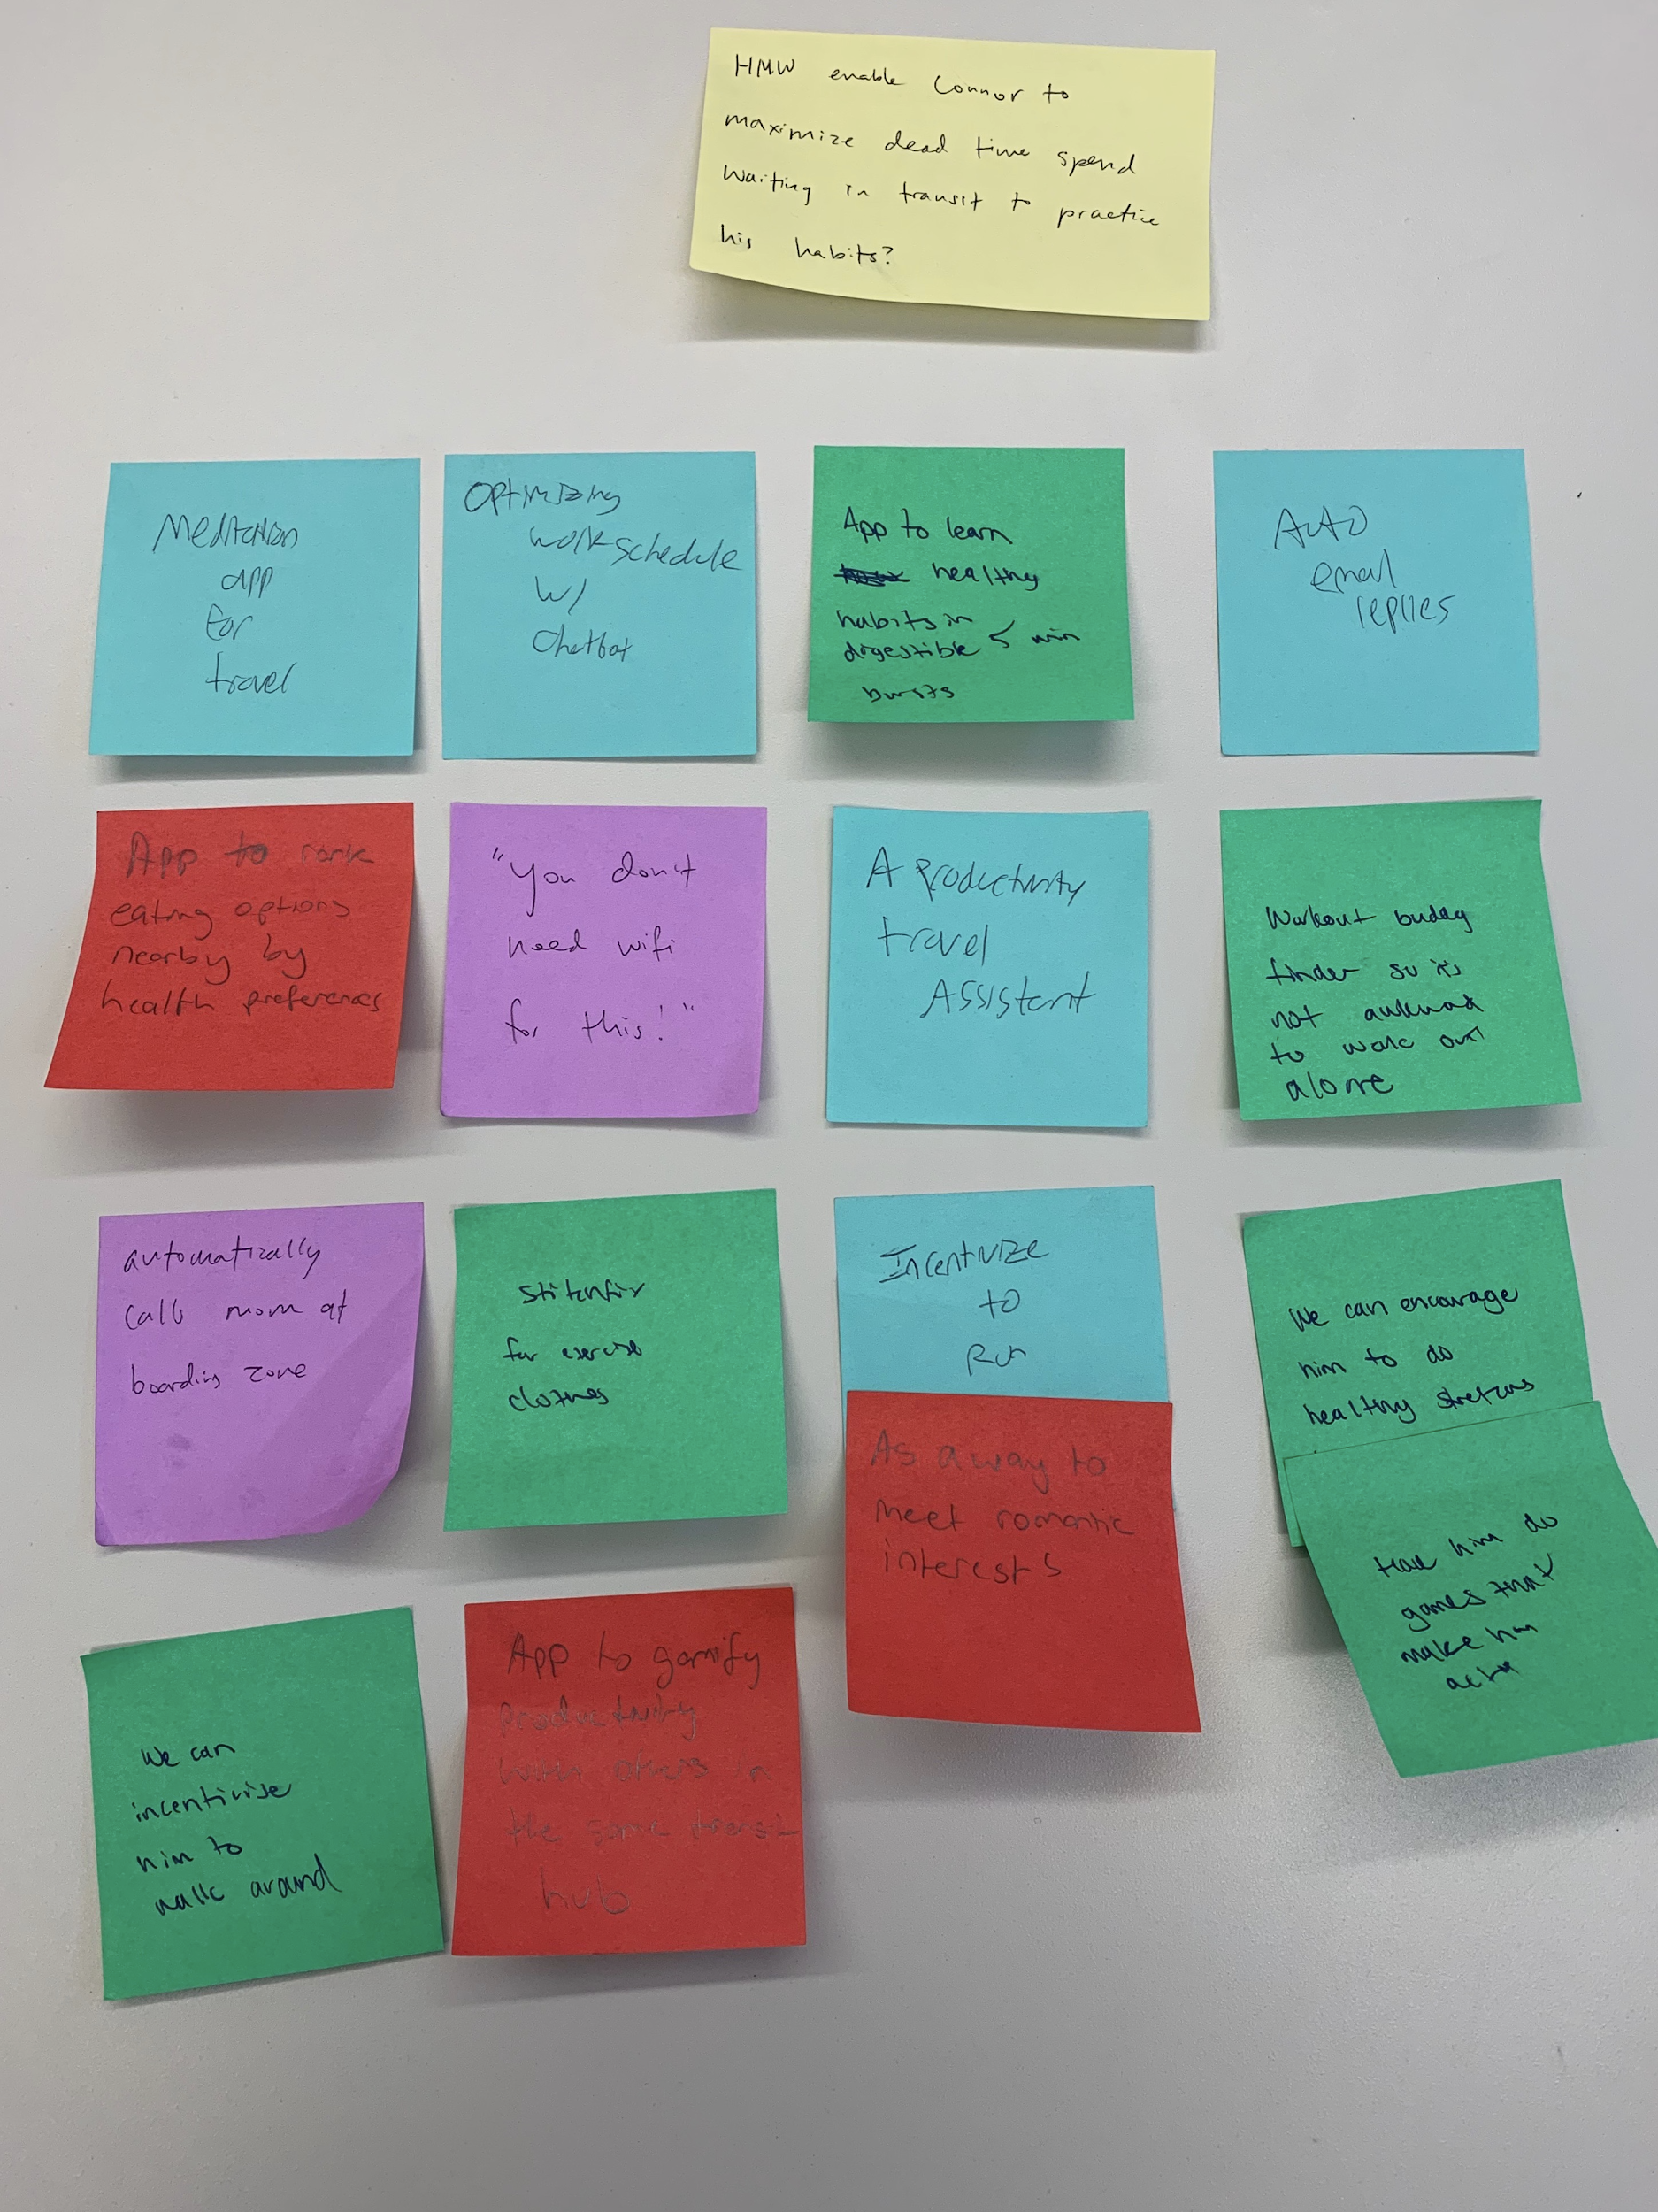 HMW enable Connor to
maximize dead time spend
waiting in transit to practice
his habits?
Meditation
app
for
travel
Optimizing
work schedule
w/
Chatbot
App to learn
healthy
habits in
digestible 5 min
bursts
Auto
email
replies
App to rank
eating options
nearby by
health preferences
"you don't
need wifi
for this!"
A Productivity
travel
Assistant
Workout buddy
finder so it's
not awkward
to work out
alone
automatically
call mom at
boarding zone
Stitchfix
for exercise
clothes
Incentivize
to
Run
As a way to
meet romantic
interests
We can encourage
him to do
healthy stretches
Have him do
games that
make him
active
We can
incentivise
him to
walk around
App to gamify
productivity
with others in
the same transit
hub